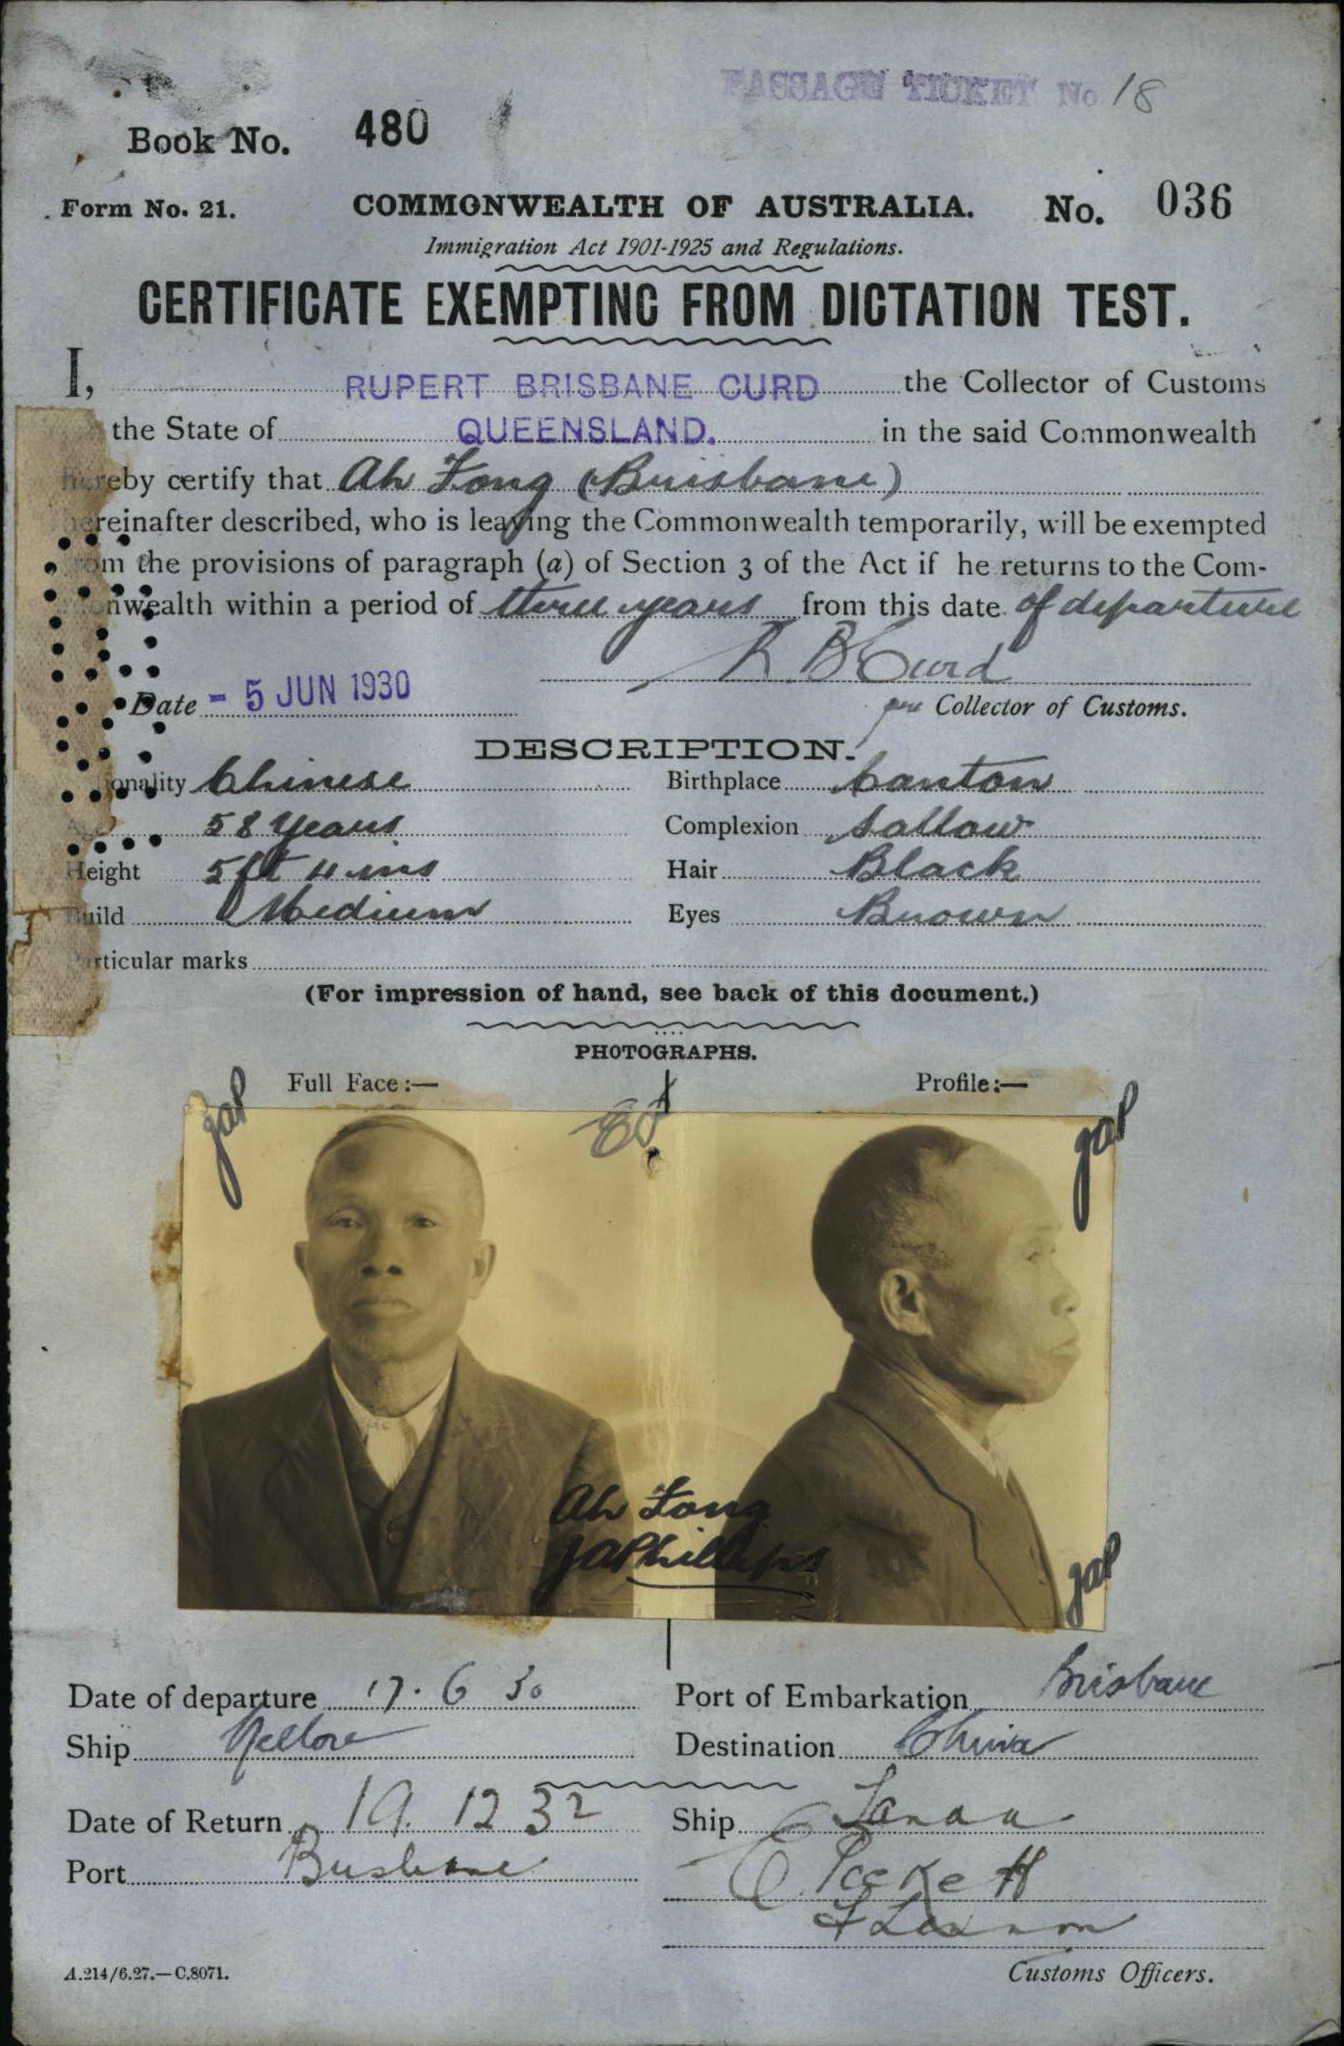 PASSAGE TICKET No 18
Book No. 480
Form No. 21. COMMONWEALTH OF AUSTRALIA. No. 036
Immigration Act 1901-1925 and Regulations.
CERTIFICATE EXEMPTING FROM DICTATION TEST.
I, RUPERT BRISBANE CURD the Collector of Customs
the State of QUEENSLAND. in the said Commonwealth
hereby certify that Ah Fong (Brisbane)
hereinafter described, who is leaving the Commonwealth temporarily, will be exempted
from the provisions of paragraph (a) of Section 3 of the Act if he returns to the Com-
monwealth within a period of three years from this date of departure
R B Curd
Date - 5 JUN 1930 Collector of Customs.
DESCRIPTION.
Nationality Chinese Birthplace Canton
Age 58 Years Complexion Sallow
Height 5ft 4 ins Hair Black
Build Medium Eyes Brown
Particular marks
(For impression of hand, see back of this document.)
PHOTOGRAPHS.
Full Face:— Profile:—
JAP
JAP
Ah Fong
JAPhillips
JAP
Date of departure 17. 6 30 Port of Embarkation Brisbane
Ship Nellore Destination China
Date of Return 19. 12 32 Ship Tanda
Port Brisbane
Customs Officers.
A.214/6.27.—C.8071.